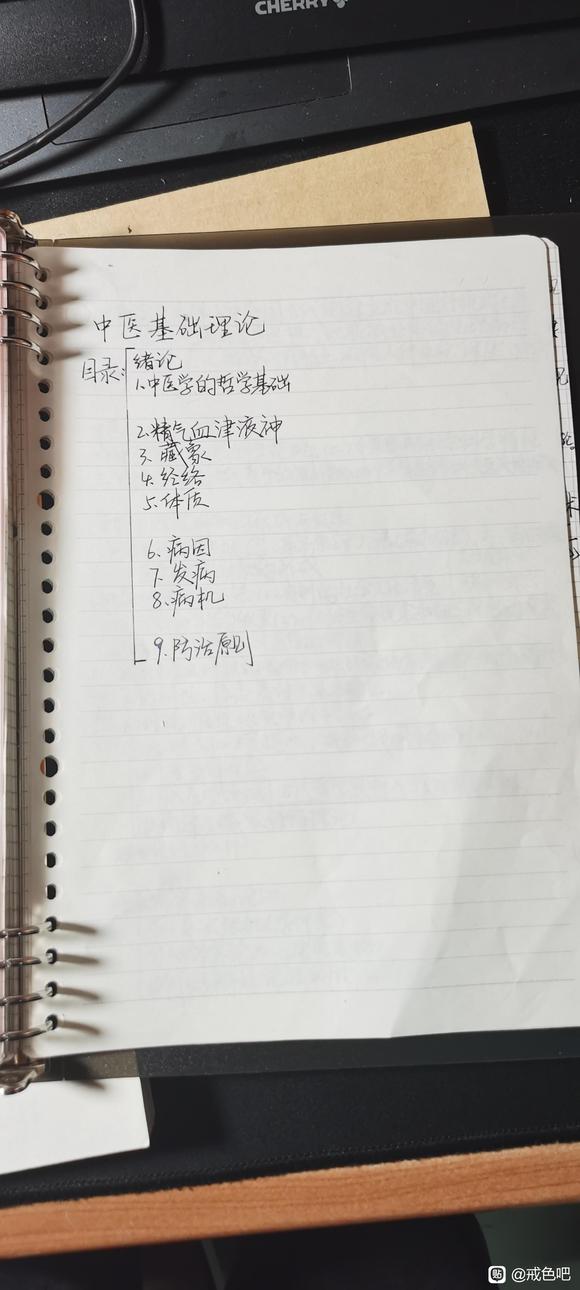 CHERRY
中医基础理论
目录:
绪论
1.中医学的哲学基础
2.精气血津液神
3.藏象
4.经络
5.体质
6.病因
7.发病
8.病机
9.防治原则
贴 @戒色吧